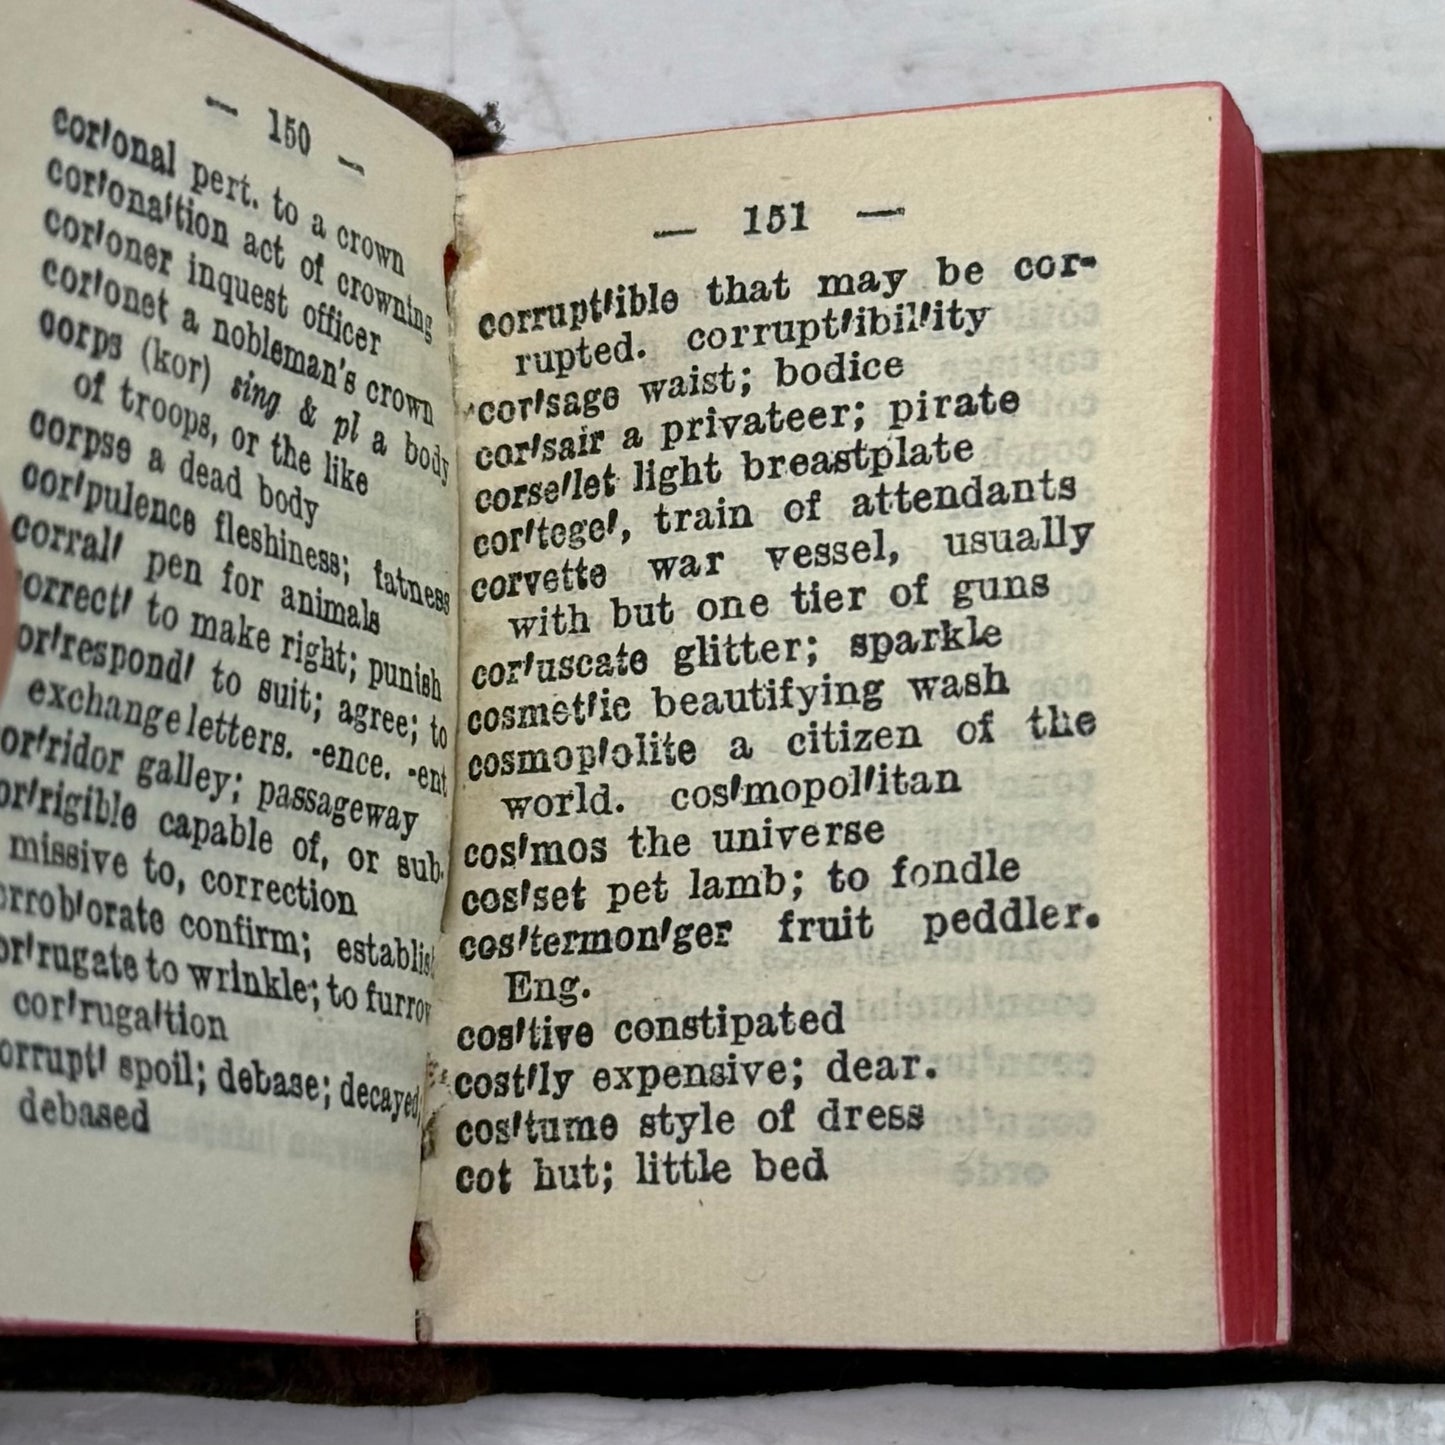 — 150 —
cor'onal pert. to a crown
cor'ona'tion act of crowning
cor'oner inquest officer
cor'onet a nobleman's crown
corps (kor) sing & pl a body
of troops, or the like
corpse a dead body
cor'pulence fleshiness; fatness
corral' pen for animals
orrect' to make right; punish
or'respond' to suit; agree; to
exchange letters. -ence. -ent
or'ridor galley; passageway
or'rigible capable of, or sub-
missive to, correction
orrob'orate confirm; establis
or'rugate to wrinkle; to furrow
cor'ruga'tion
orrupt' spoil; debase; decayed,
debased
— 151 —
corrupt'ible that may be cor-
rupted. corrupt'ibil'ity
cor'sage waist; bodice
cor'sair a privateer; pirate
corse'let light breastplate
cor'tege', train of attendants
corvette war vessel, usually
with but one tier of guns
cor'uscate glitter; sparkle
cosmet'ic beautifying wash
cosmop'olite a citizen of the
world. cos'mopol'itan
cos'mos the universe
cos'set pet lamb; to fondle
cos'termon'ger fruit peddler.
Eng.
cos'tive constipated
cost'ly expensive; dear.
cos'tume style of dress
cot hut; little bed